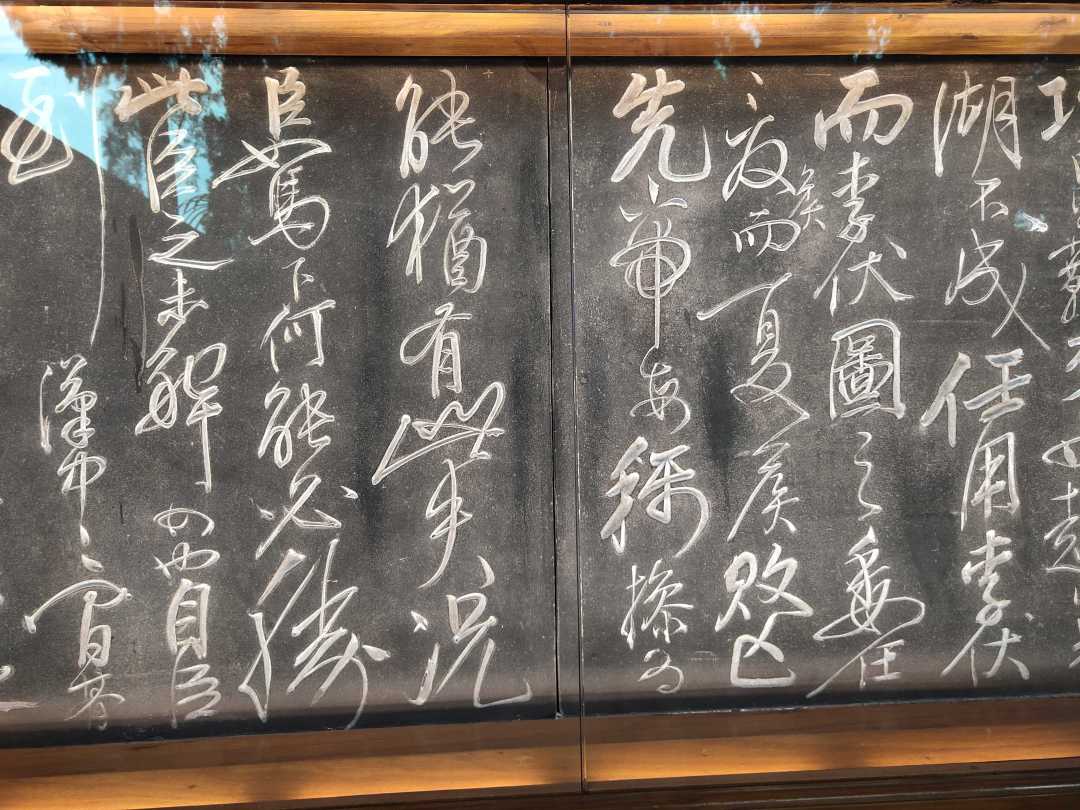 湖不成任用李伏
而李伏圖之委任
夏侯而夏侯敗亡
先帝每稱操為
能猶有此失況
臣駑下何能必勝
此臣之未解四也自臣
到漢中中間期